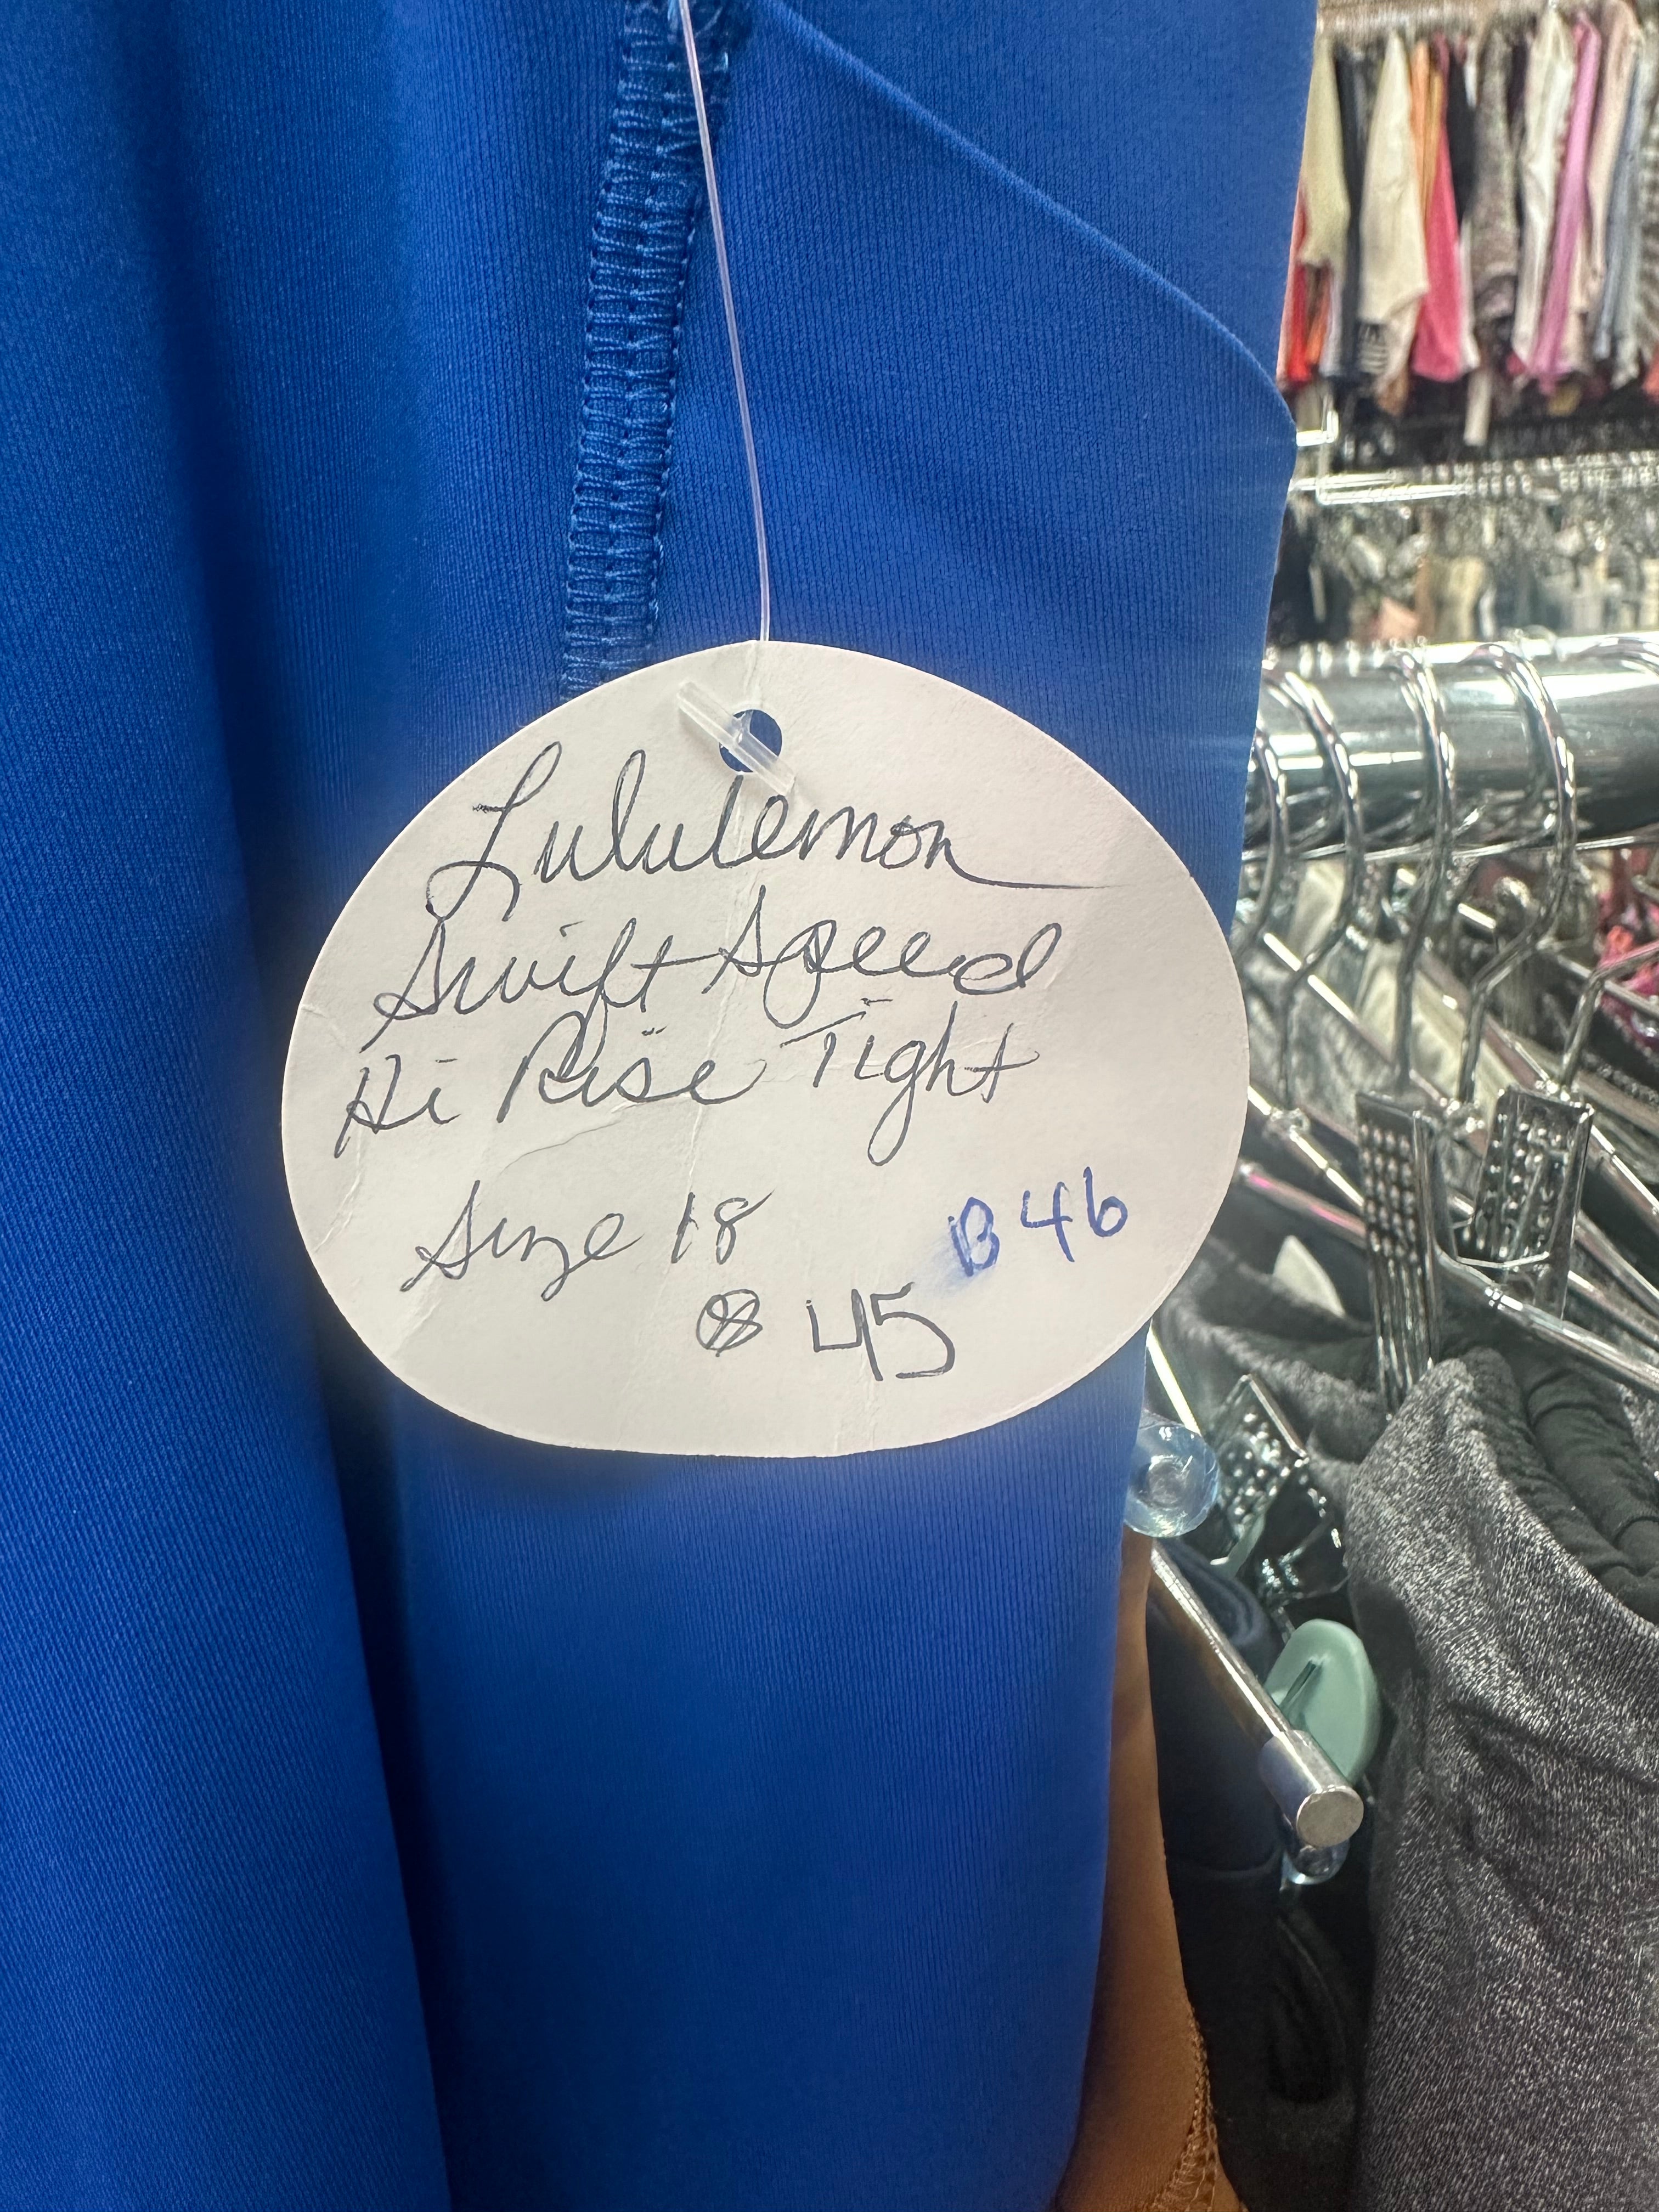 Lululemon
Swift Speed
Hi Rise Tight
Size 18
B46
$ 45